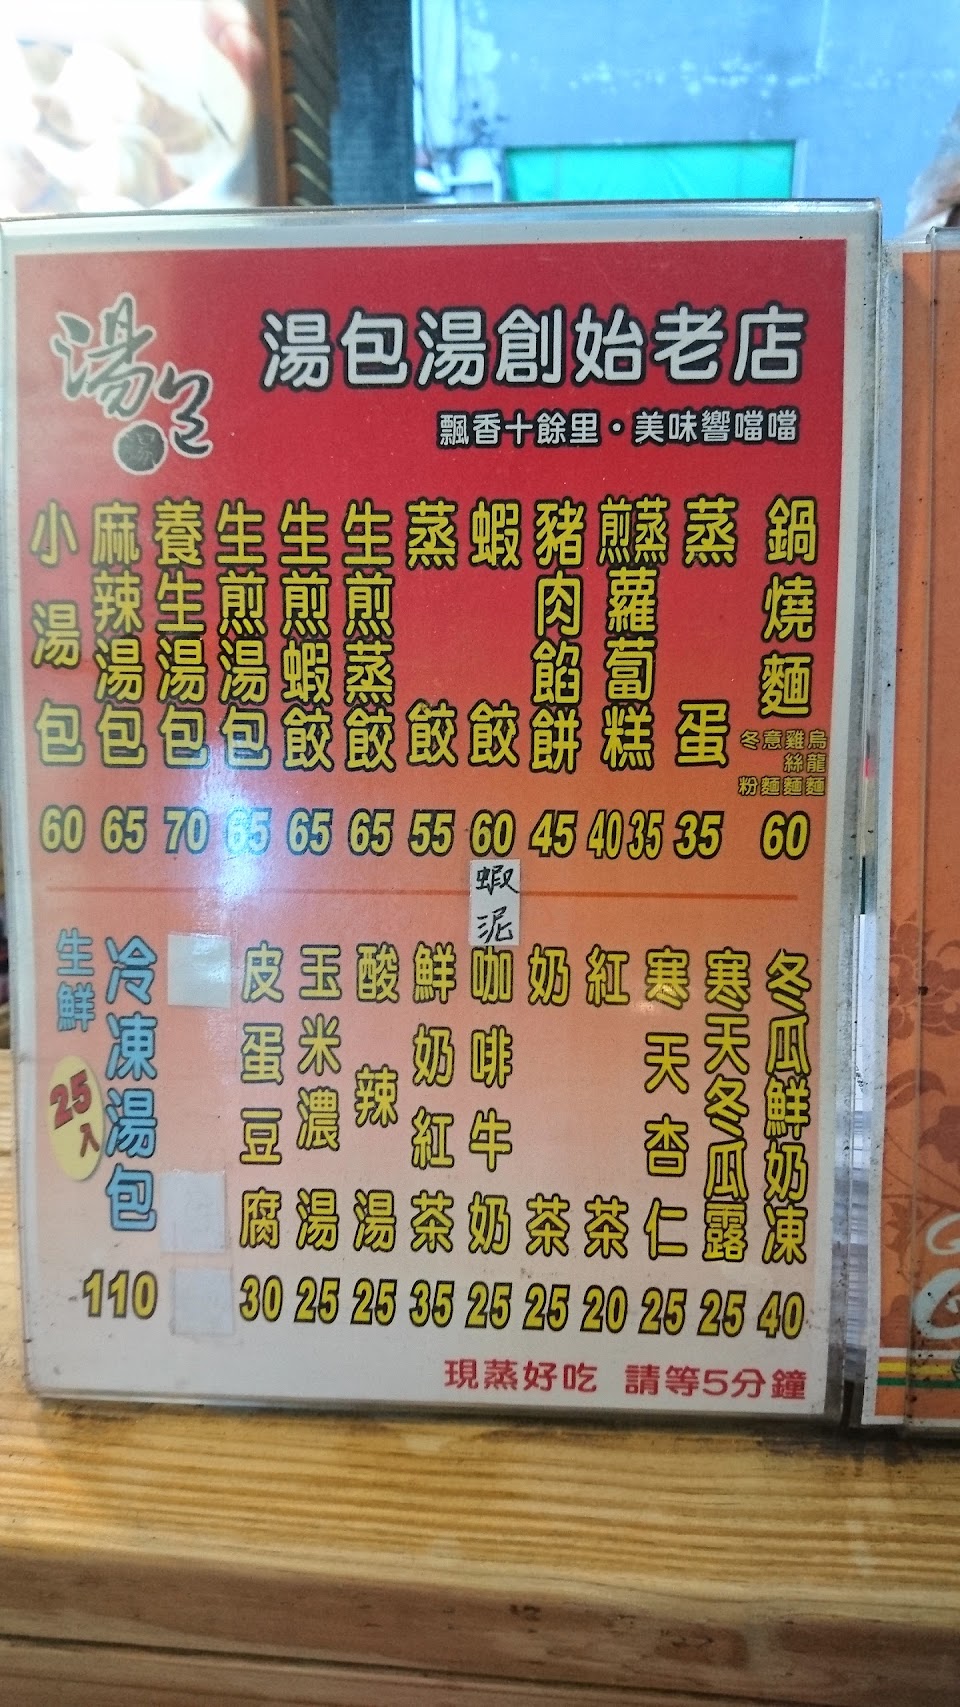 湯包
湯
湯包湯創始老店
飄香十餘里・美味響噹噹
鍋燒麵
烏龍麵
雞絲麵
意麵
冬粉
60
蒸蛋
35
煎蒸蘿蔔糕
40 35
豬肉餡餅
45
蝦餃
60
蝦泥
蒸餃
55
生煎蒸餃
65
生煎蝦餃
65
生煎湯包
65
養生湯包
70
麻辣湯包
65
小湯包
60
冬瓜鮮奶凍
40
寒天冬瓜露
25
寒天杏仁
25
紅茶
20
奶茶
25
咖啡牛奶
25
鮮奶紅茶
35
酸辣湯
25
玉米濃湯
25
皮蛋豆腐
30
冷凍湯包
生鮮
25入
110
現蒸好吃 請等5分鐘